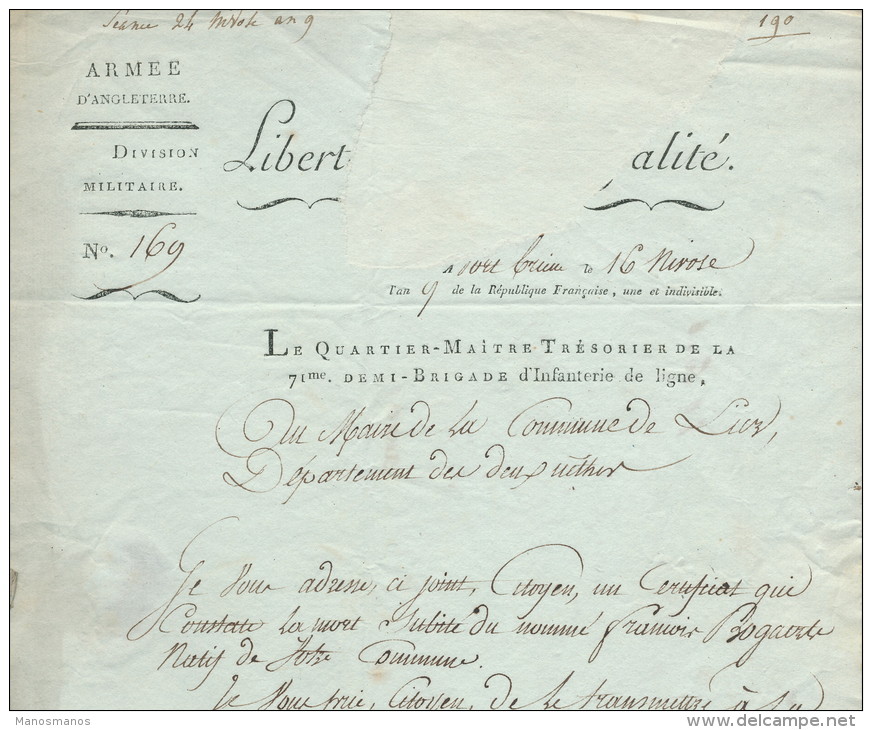 Séance 24 nivose an 9
190
ARMEE
D'ANGLETERRE.
DIVISION
MILITAIRE.
Libert alité.
No. 169
A le 16 Nivose
l'an 9 de la République Française, une et indivisible.
LE QUARTIER-MAÎTRE-TRÉSORIER DE LA
71me. DEMI-BRIGADE d'Infanterie de ligne,
Du Maire de La Commune de Lier,
Département des deux nèthes
Je Vous adresse, ci joint, Citoyen, un Certificat qui
Constate La mort Subite du nommé francois Bogaerts
Natif de Votre Commune.
Je Vous prie, Citoyen, de Le transmettre à Sa
Manosmanos
www.delcampe.net